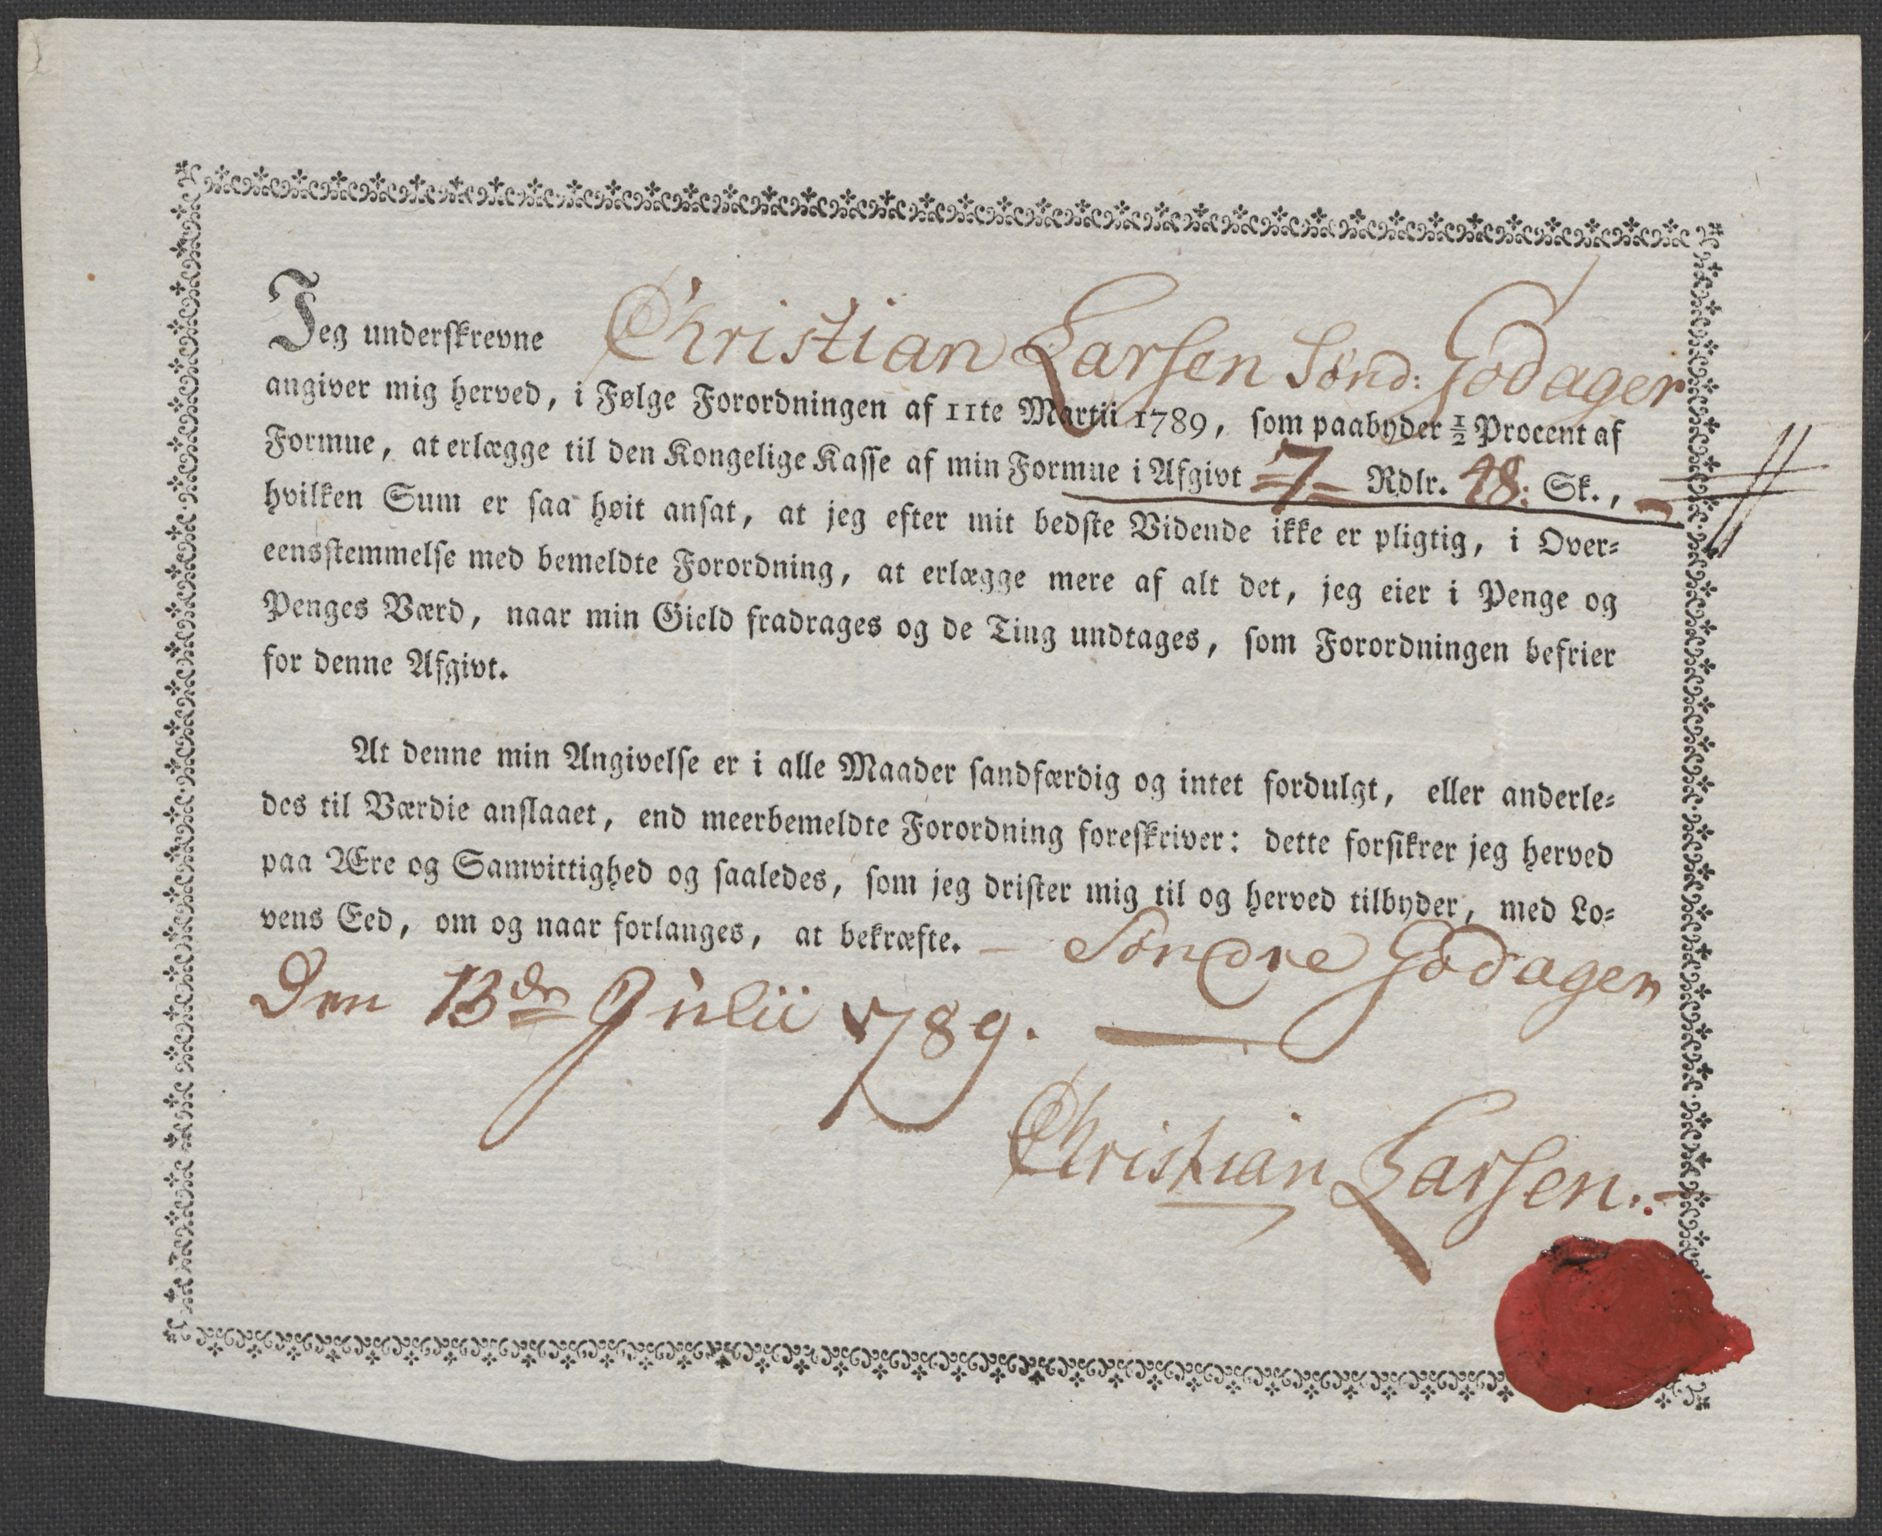 Jeg underskrevne Christian Larsen Sönd: Godager
angiver mig herved, i Følge Forordningen af 11te Martii 1789, som paabyder ½ Procent af
Formue, at erlægge til den Kongelige Kasse af min Formue i Afgivt 7 Rdlr. 48: Sk.,
hvilken Sum er saa høit ansat, at jeg efter mit bedste Vidende ikke er pligtig, i Over-
eensstemmelse med bemeldte Forordning, at erlægge mere af alt det, jeg eier i Penge og
Penges Værd, naar min Gield fradrages og de Ting undtages, som Forordningen befrier
for denne Afgivt.
At denne min Angivelse er i alle Maader sandfærdig og intet fordulgt, eller anderle-
des til Værdie anslaaet, end meerbemeldte Forordning foreskriver: dette forsikrer jeg herved
paa Ære og Samvittighed og saaledes, som jeg drister mig til og herved tilbyder, med Lo-
vens Eed, om og naar forlanges, at bekræfte. — Söndre Godager
Den 13de Julii 1789. —
Christian Larsen. —